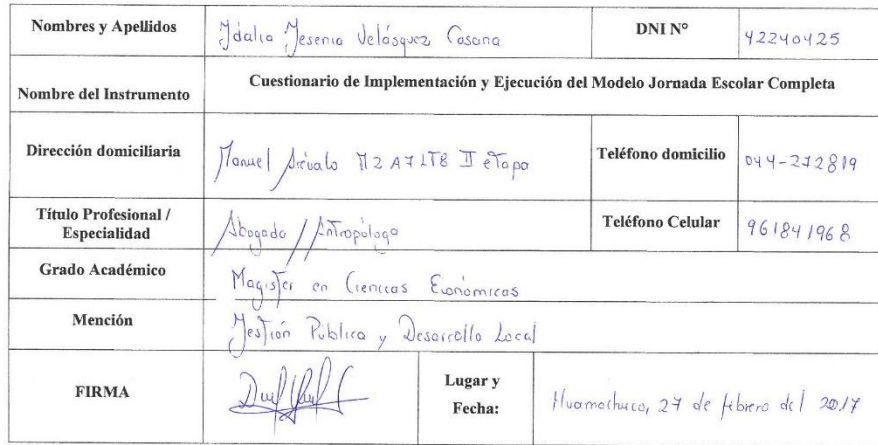 Nombres y Apellidos Idalia Jesenia Velásquez Casana DNI N° 42240425
Nombre del Instrumento Cuestionario de Implementación y Ejecución del Modelo Jornada Escolar Completa
Dirección domiciliaria Manuel Arévalo MZ A7 LT8 II eTapa Teléfono domicilio 044-272819
Título Profesional /
Especialidad Abogada / Antropóloga Teléfono Celular 961841968
Grado Académico Magister en Ciencias Económicas
Mención Gestión Pública y Desarrollo Local
FIRMA Lugar y
Fecha: Huamachuco, 27 de febrero del 2017